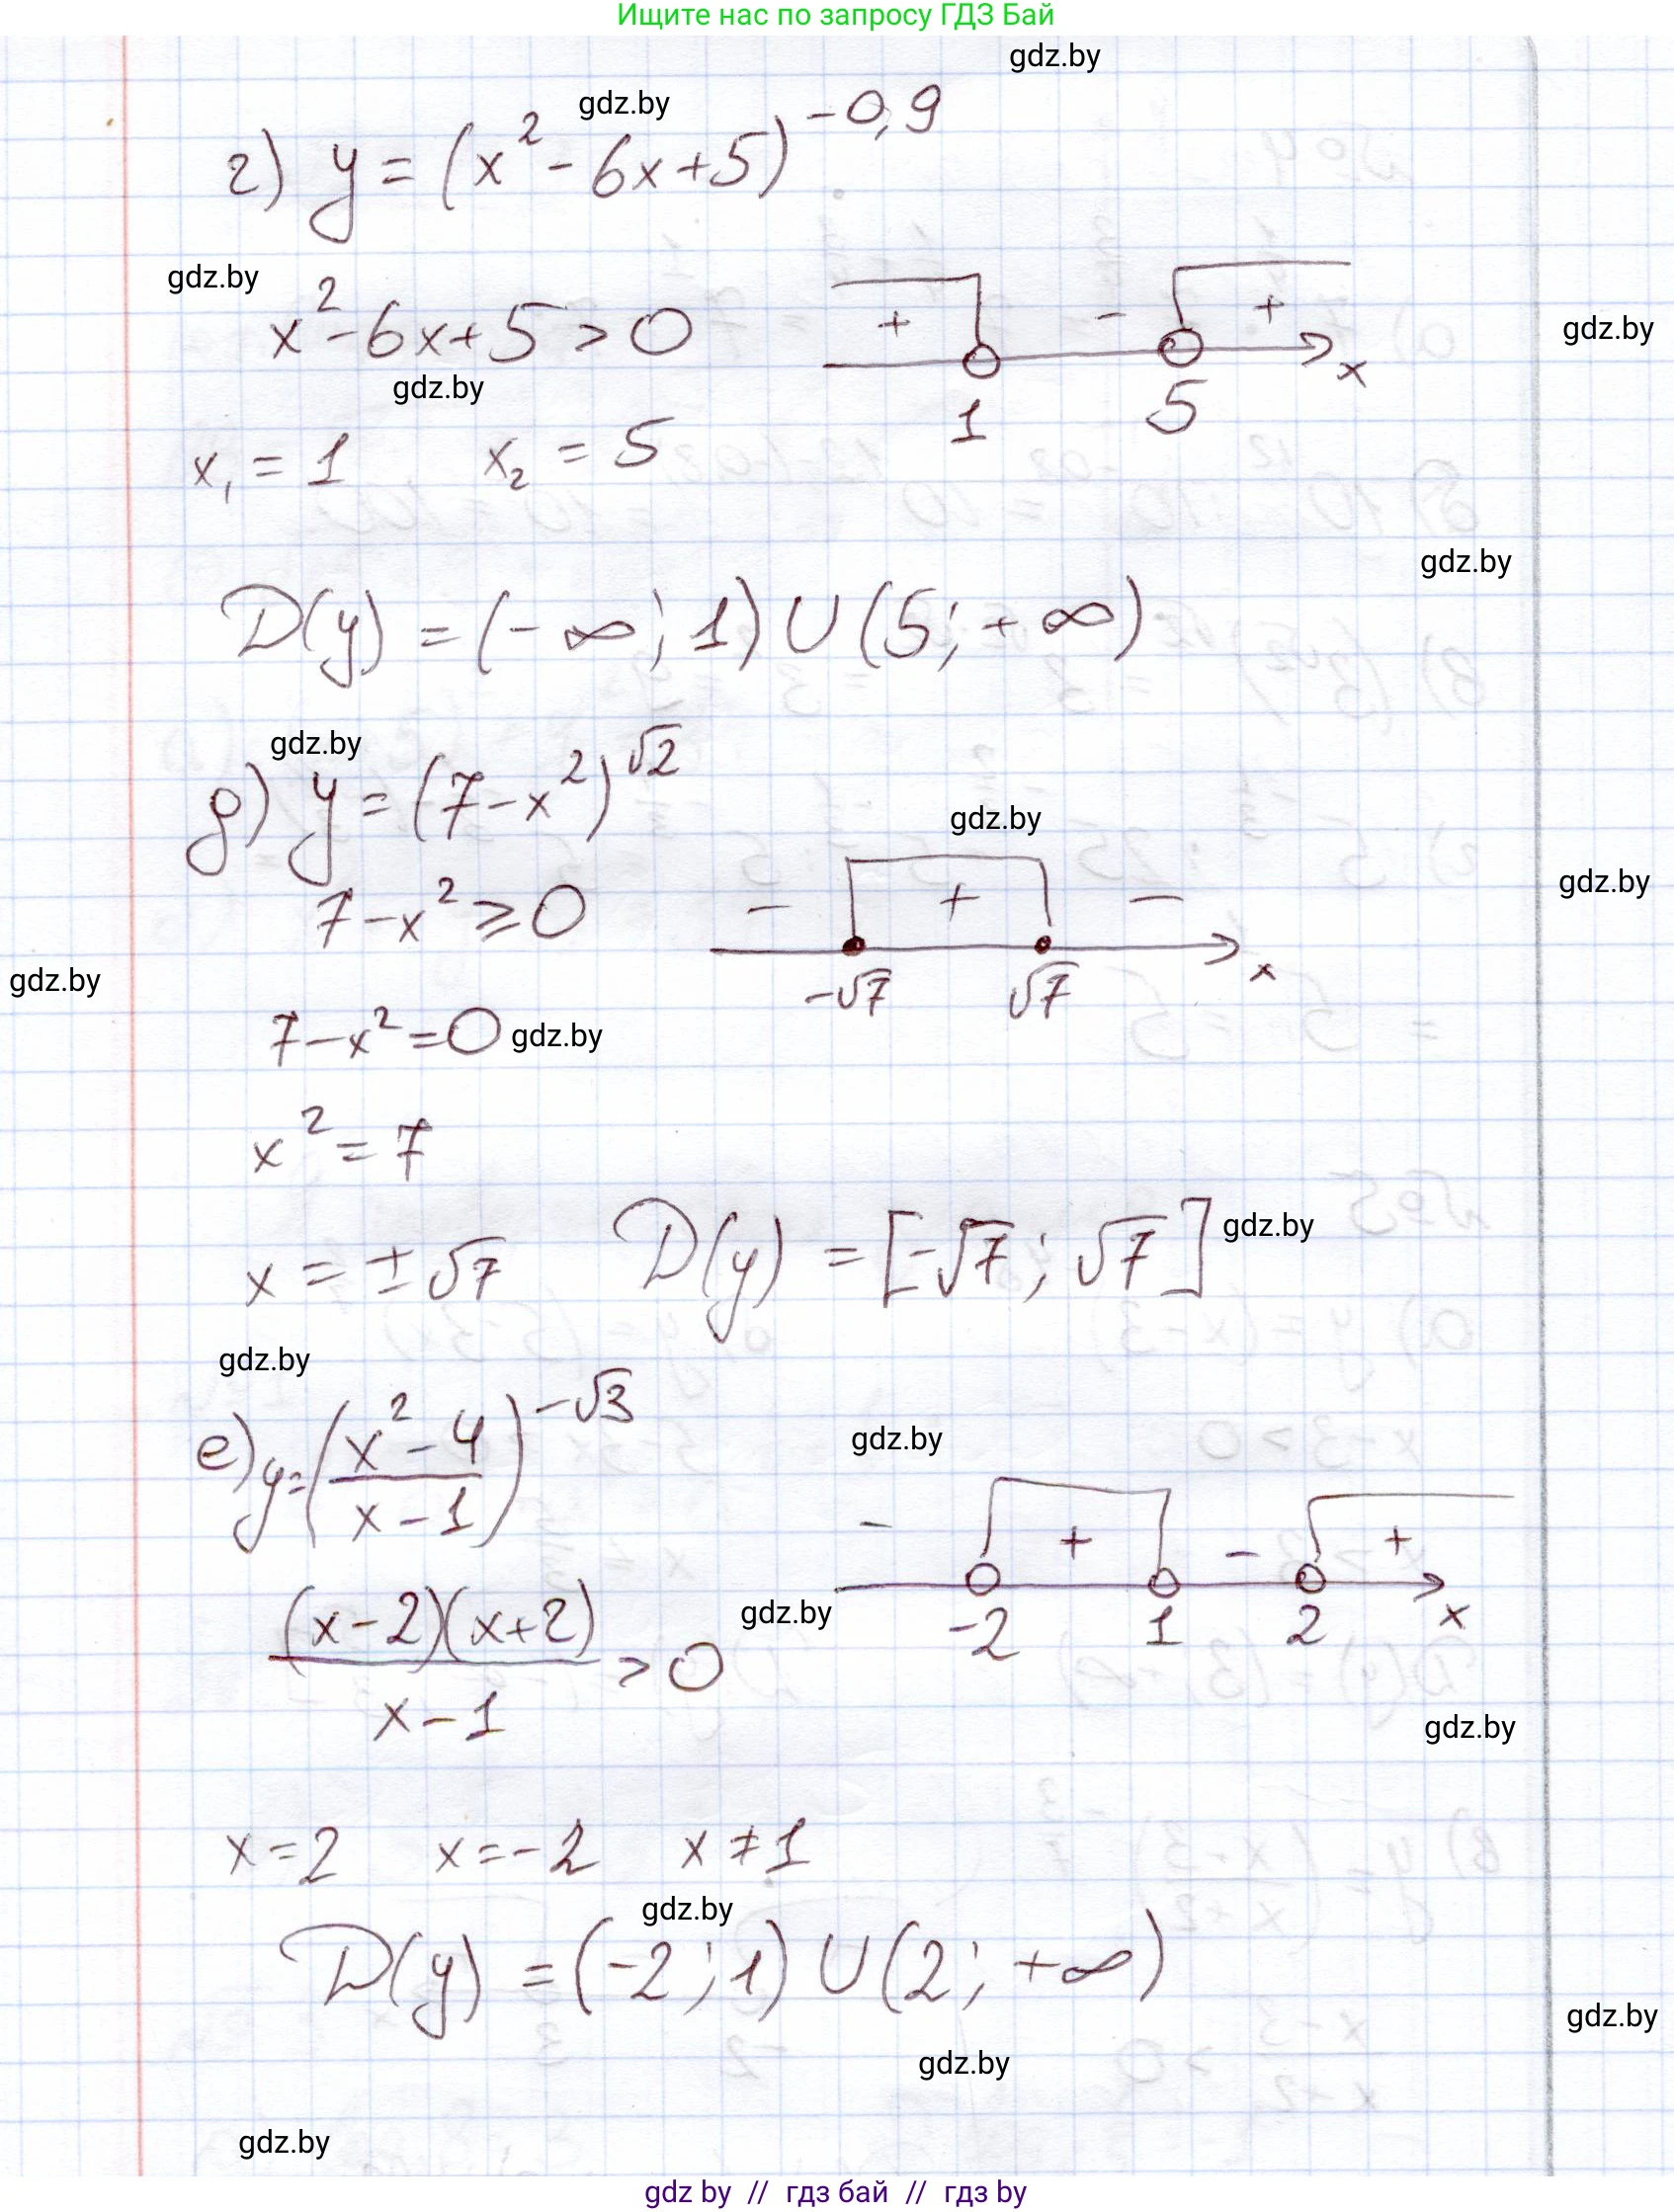 Ищите нас по запросу ГДЗ Бай
gdz.by
gdz.by
г) y = (x² - 6x + 5)^{-0,9}
gdz.by
x² - 6x + 5 > 0
+ - + x
gdz.by
gdz.by
1 5
x₁ = 1 x₂ = 5
gdz.by
D(y) = (-∞; 1) ∪ (5; +∞)
gdz.by
д) y = (7 - x²)^{√2}
gdz.by
7 - x² ≥ 0
- + - x
gdz.by
gdz.by
-√7 √7
7 - x² = 0
gdz.by
x² = 7
x = ± √7 D(y) = [-√7; √7]
gdz.by
gdz.by
е) y = ((x² - 4)/(x - 1))^{-√3}
gdz.by
- + - + x
-2 1 2
(x - 2)(x + 2)
/(x - 1) > 0
gdz.by
gdz.by
x = 2 x = -2 x ≠ 1
gdz.by
D(y) = (-2; 1) ∪ (2; +∞)
gdz.by
gdz.by
gdz.by
gdz by // гдз бай // гдз by